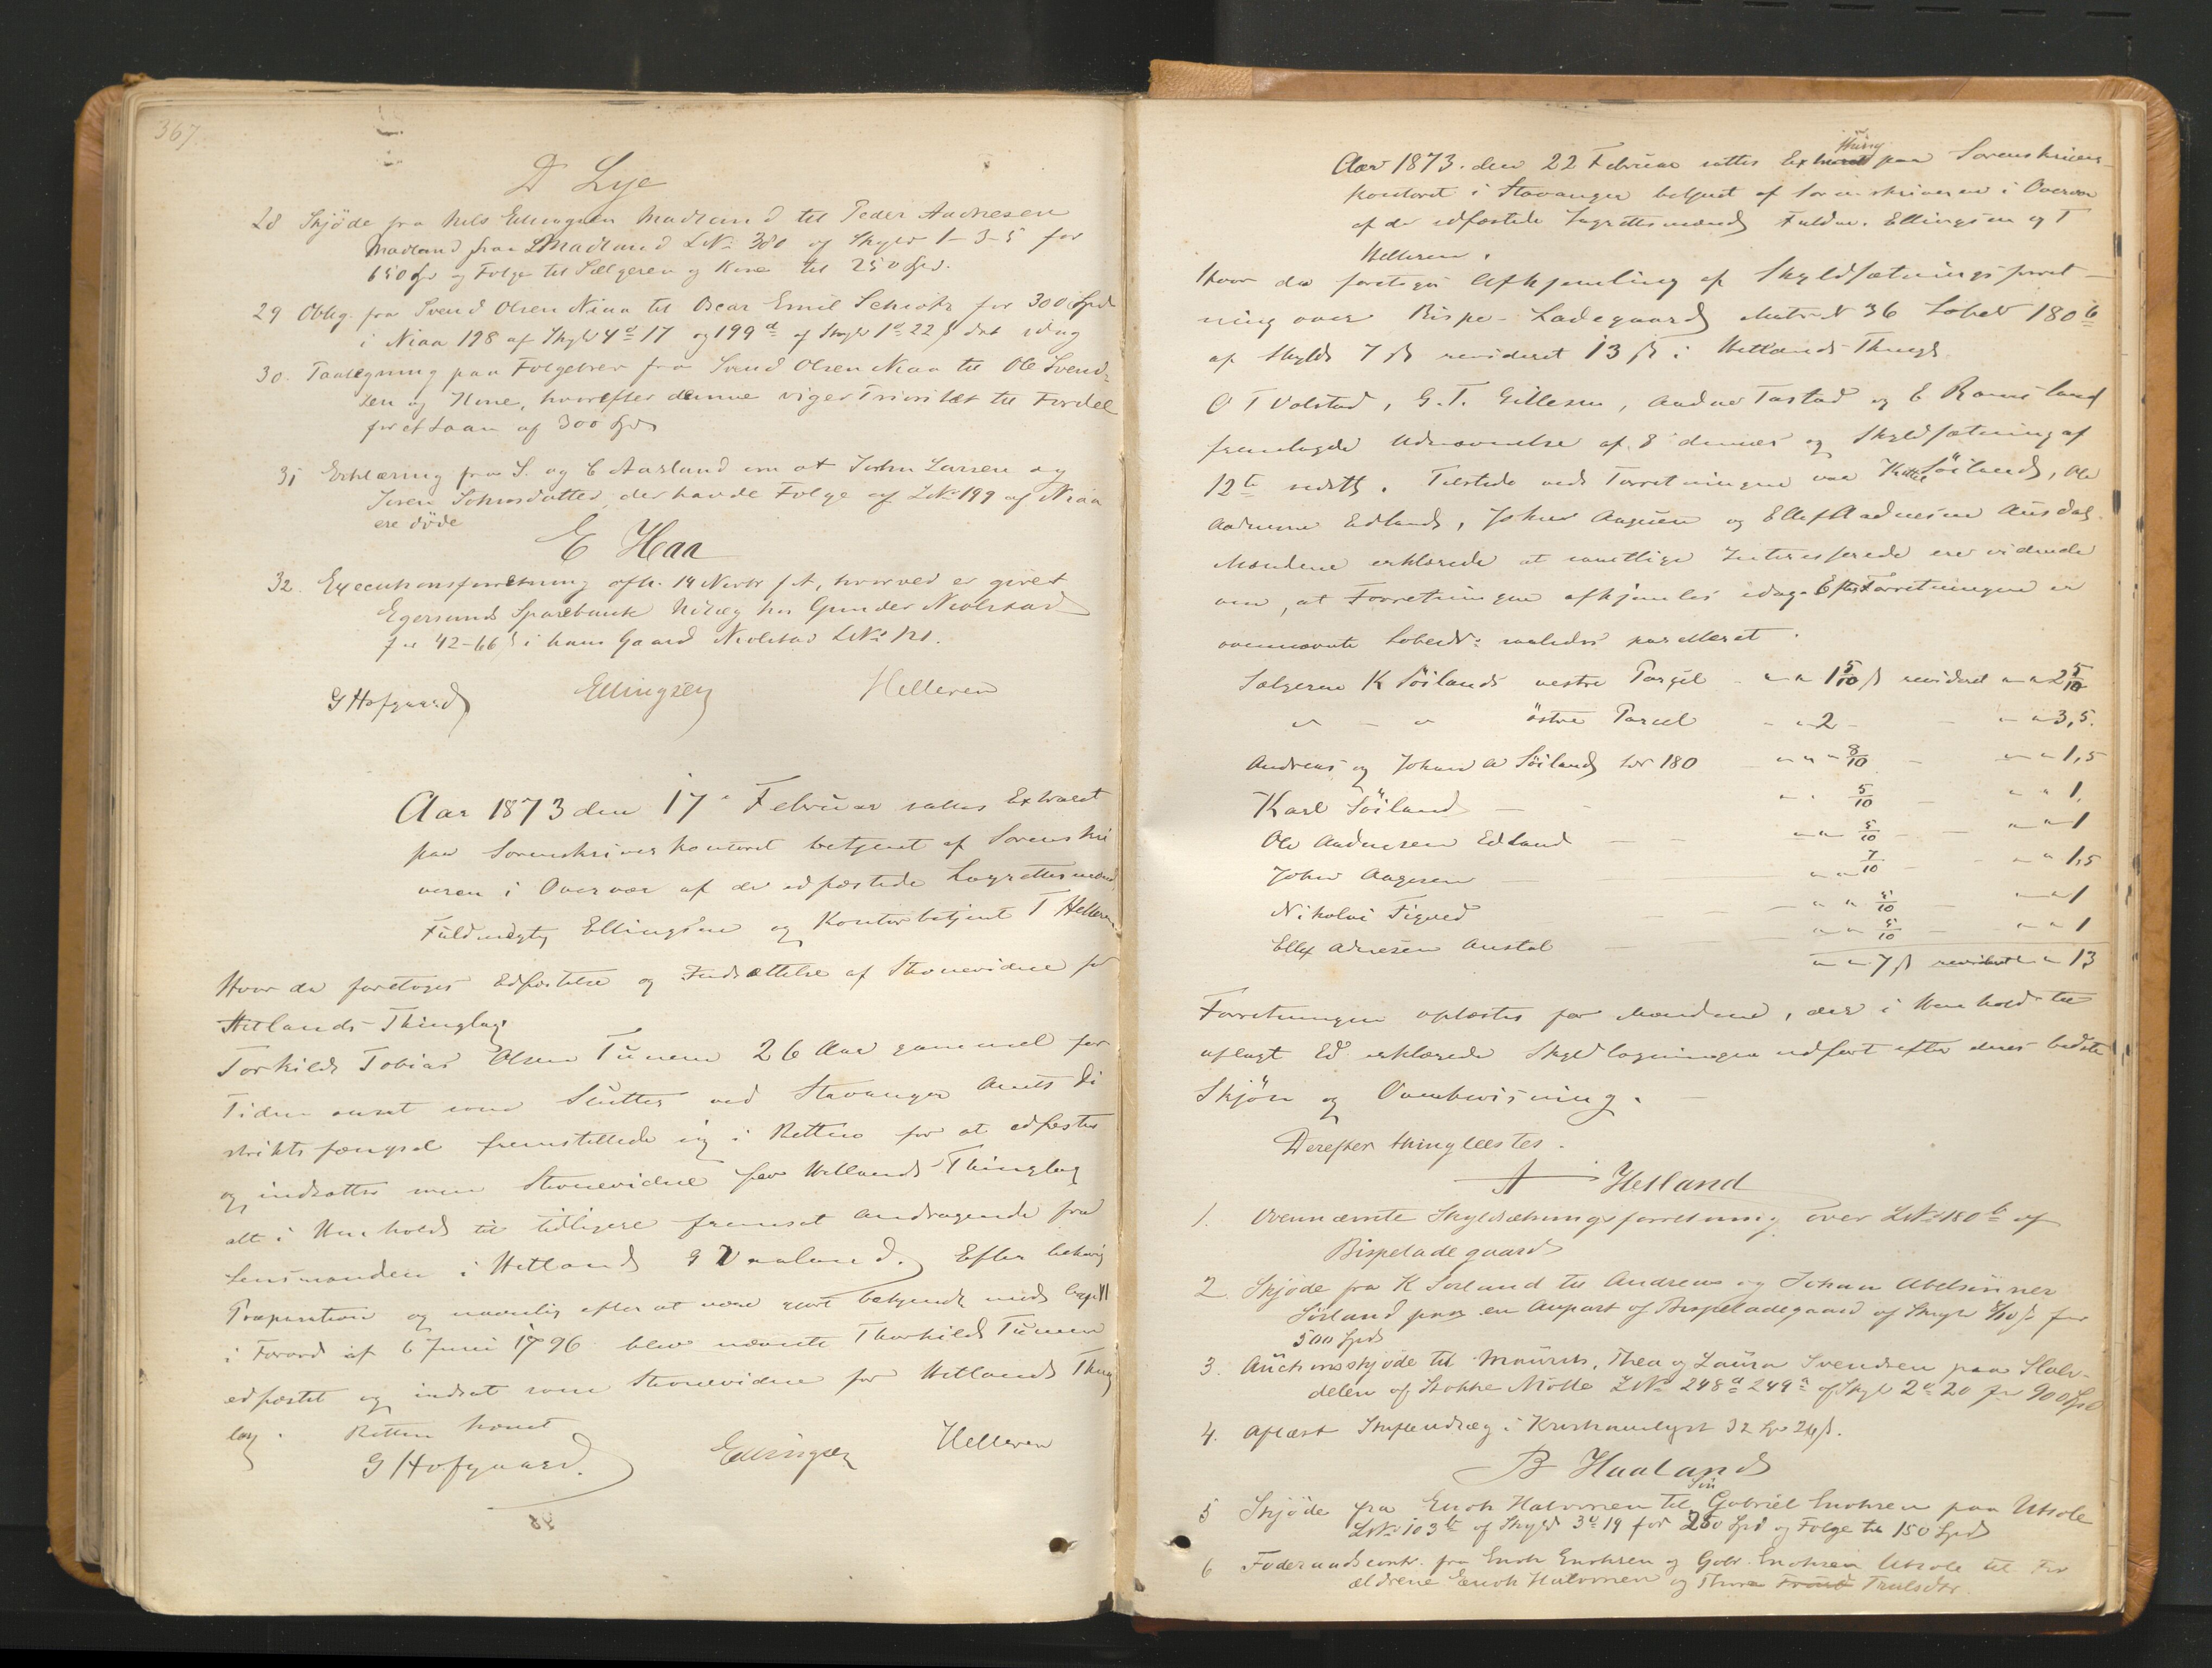 367
D Lye
28 Skjöde fra Nils Ellingsen Madland til Peder Andresen
Madland paa Madland LNo 380 af Skyld 1-3-5 for
650 Spd og Folge til Sælgeren og Kone til 250 Spd.
29 Oblig. fra Svend Olsen Niaa til Oscar Emil Schiötz for 300 Spd
i Niaa 198 af Skyld 4d 17 og 199a af Skyld 1d 22 ß dat idag
30. Paategning paa Folgebrev fra Svend Olsen Niaa til Ole Svend-
sen og Kone, hvorefter denne viger Prioritet til Fordel
for et Laan af 300 Spd
31 Erklæring fra S. og C Aarsland om at John Larsen og
Johnsdatter, der havde Folge af LNo 199 af Niaa
ere döde
E Haa
32. Executionsforretning afh. 14 Novbr f A, hvorved er givet
Egersunds Sparebank Udlæg hos Gunder
for 42-66 ß i hans Gaard LNo 121.
G Hofgaard Ellingsen Helleren
Aar 1873 den 17 Februar sattes Extraret
paa Sorenskriverkontoret betjent af Sorenskri
veren i Overvær af de edfæstede Lagrettesmænd
Fuldmægtig Ellingsen og Kontorbetjent T Helleren
Hvor da foretoges Edfæstelse og Indsættelse af Stevnevidne for
Hetlands Thinglag
Torkild Tobias Olsen Tunem 26 Aar gammel for
Tiden ansat som Slutter ved Stavanger Amts Di
striktsfængsel fremstillede sig i Retten for at edfæstes
og indsættes som Stevnevidne for Hetlands Thinglag
alt i Henhold til tidligere fremsat Andragende fra
Lensmanden i Hetland Vaaland. Efter behørig
Præparation og navnlig efter at være gjort bekjendt med
i Forord af 6 Juni 1796 blev nævnte Thorkild Tunem
edfæstet og indsat som Stevnevidne for Hetlands Thing
lag. Retten hævet
G Hofgaard. Ellingsen Helleren
Aar 1873. den 22 Februar sattes Extrathing paa Sorenskriver-
kontoret i Stavanger betjent af Sorenskriveren i Overvær
af de edfæstede Lagrettesmænd Fuldm. Ellingsen og T
Helleren.
Hvor da foretoges Afhjemling af Skyldsætningsforret-
ning over Bispe-Ladegaard Matr N 36 Løbe N 180b
af Skyld 7 ß revideret 13 ß i Hetlands Thinglag
O T Volstad, G. T. Gillesen, Tastad og E Ramsland
fremlagde Udnævnelse af 8 dennes og Skyldsætning af
12te sidstl. Tilstede ved Forretningen var K Söiland, Ole
Aadnesen Edland, Johan Aagesen og Ellef Aadnesen Ausdal.
Mændene erklærede at samtlige Interesserede ere vidende
om, at Forretningen afhjemles idag. Efter Forretningen er
ovennævnte Løbe N: saaledes parcelleret.
Sælgeren K Söilands vestre Parcel - " " 1 5/10 ß revideret " " 2 5/10
" - " östre Parcel - " 2 - - " " 3,5.
Andreas og Johan A Söiland for 180 - " " " 8/10 - " " 1,5
Karl Söiland - - " " 5/10 - " " 1,
Ole Aadnesen Edland - - " " 5/10 - - " " 1
Johan Aagesen - " " 7/10 - - " " 1,5
Nikolai Figved - - " " 5/10 - " " 1
Ellef Adnesen Austal - - " " 5/10 - " " 1
" " 7 ß revideret " 13
Forretningen oplæstes for Mændene, der i Henhold til
aflagt Ed erklærede Skyldlægningen udført efter deres bedste
Skjön og Overbevisning. -
Derefter thinglæstes.
A Hetland
1. Ovennævnte Skyldsætningsforretning over LNo 180b af
Bispeladegaard
2. Skjöde fra K Söiland til Andreas og Johan Abelsönner
Söiland paa en Anpart af Bispeladegaard af Skyld 8/10 ß for
500 Spd
3. Auctionsskjöde til Maurits, Thea og Laura Svendsen paa Halv-
delen af Stokke Mölle LNo 248a 249a af Skyld 2d 20 for 900 Spd
4. Aflæst i Kristianslyst 32 Spd 24 ß.
B Haaland
5 Skjöde fra Enok Halvorsen til Sön Gabriel Enoksen paa Utsole
LNo 103b af Skyld 3d 19 for 250 Spd og Folge til 150 Spd
6 Föderaadscontr. fra Enok Enoksen og Gabr. Enoksen Utsole til For
ældrene Enok Halvorsen og Thora Trulsdtr.